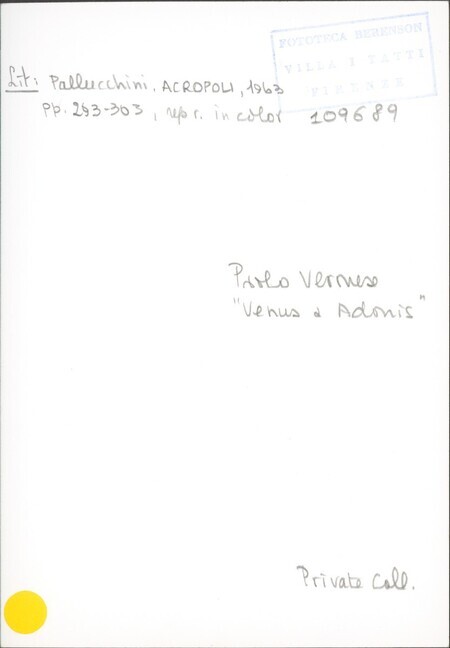 FOTOTECA BERENSON
VILLA I TATTI
FIRENZE
Lit: Pallucchini, ACROPOLI, 1963
pp. 293-303, repr. in color 109689
Paolo Veronese
"Venus & Adonis"
Private Coll.